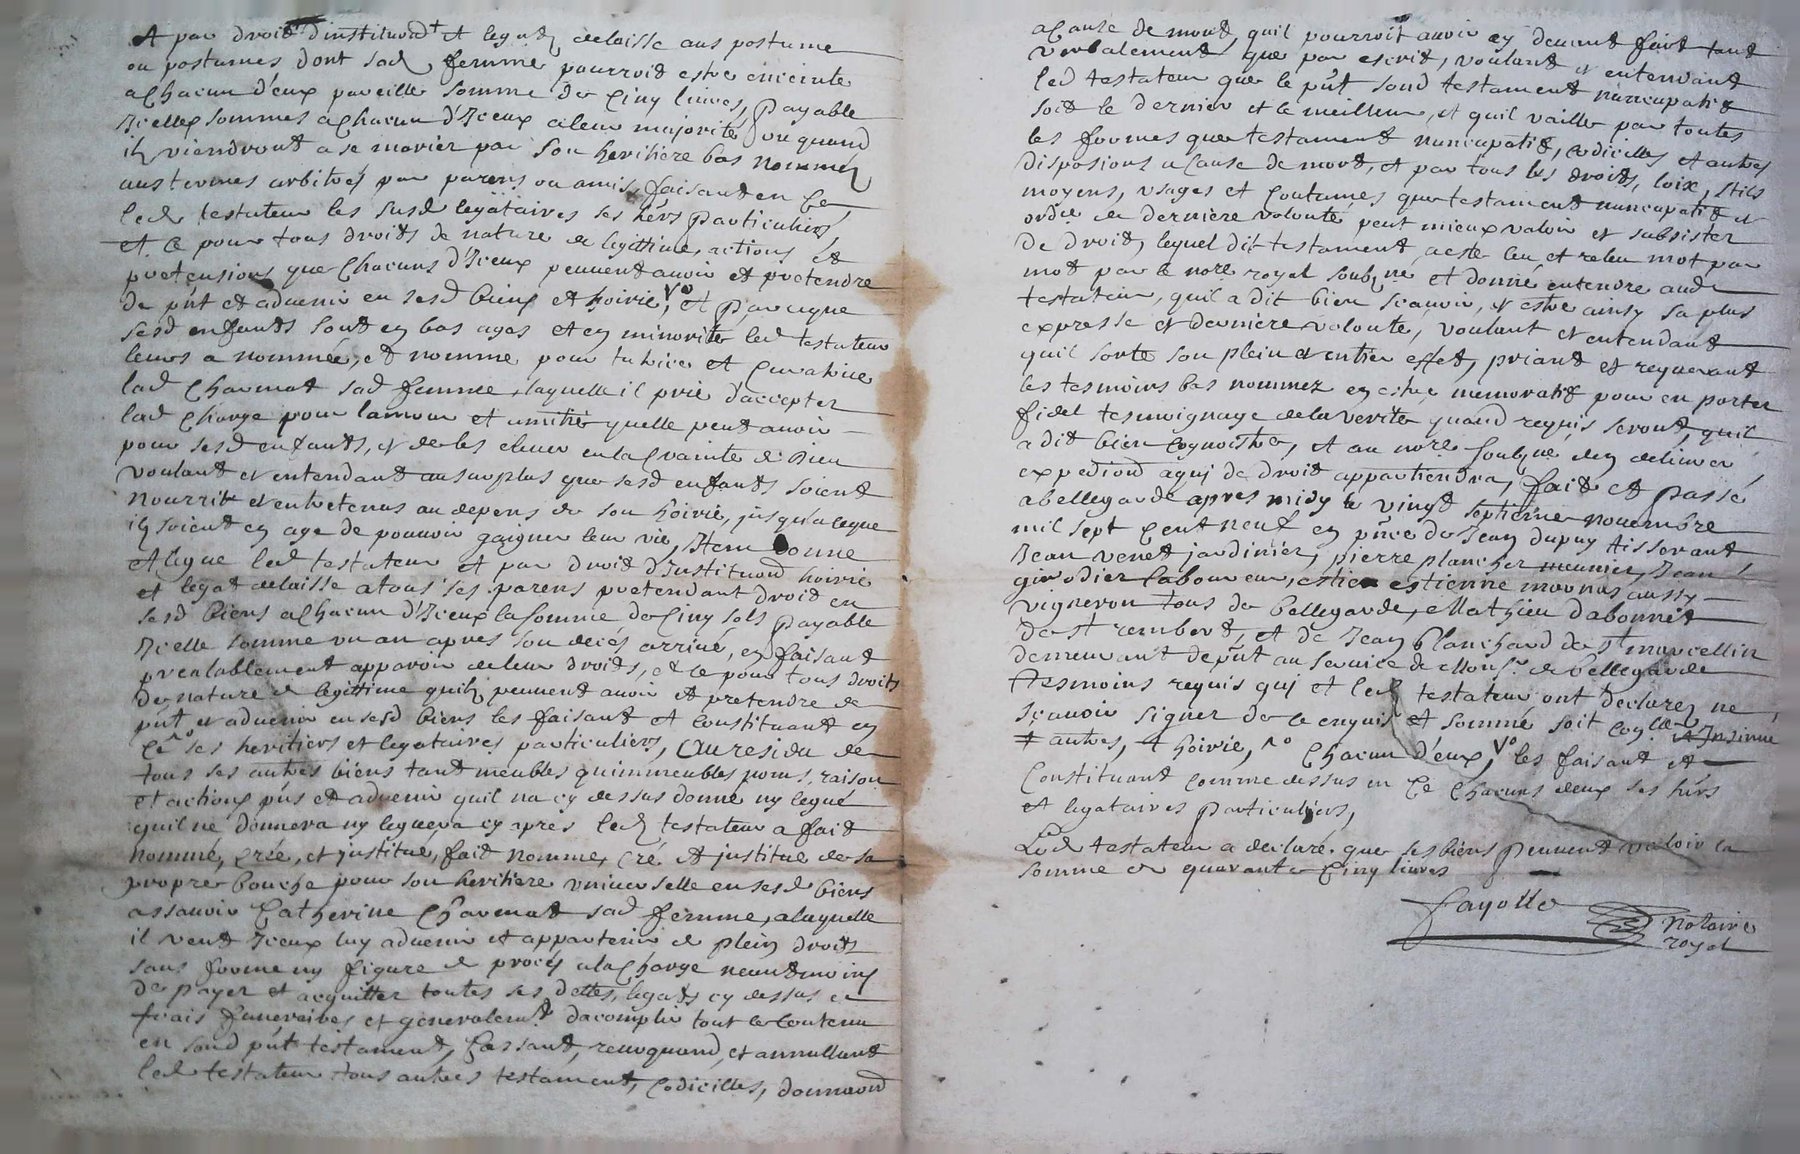 A par droit d'instituon + et legatz delaisse aus postume
ou postumes dont sad. femme pourroit estre enceinte
a chacun d'eux pareille somme de cinq livres, payable
Icelles sommes a chacun d'Iceux a leur majorité ou quand
ilz viendront a se marier par son heritiere bas nommée
aus termes arbitrés par parens ou amis, faisant en ce
led. testateur les susd. legataires ses hérs particuliers,
et ce pour tous droits de nature de legittime, actions et
pretensions que chacuns d'Iceux peuvent avoir et pretendre
de pñt et advenir en sesd. biens et hoirie, vo et parceque
sesd. enfants sont en bas ages et en minorite led. testateur
leurs a nommée, et nomme pour tutrice et curatrice
lad. Charmat sad. femme, laquelle il prie d'accepter
lad. charge pour lamour et amitié quelle peut avoir
pour sesd. enfants, et de les elever en la crainte de Dieu
voulant et entendant au surplus que sesd. enfants soient
nourrit et entretenus au depens de son hoirie, jusqu'a ceque
ilz soient en age de pouvoir gaigner leur vie, Item donne
et legue led. testateur et par droit d'Instituon hoirie
et legat delaisse a tous ses parens pretendant droit en
sesd. biens a chacun d'Iceux la somme de cinq sols payable
Icelle somme un an apres son deces arrivé, en faisant
prealablement apparoir de leur droits, et ce pour tous droits
de nature de legittime quilz peuvent avoir et pretendre de
pñt et advenir en sesd. biens les faisant et constituant en
ce ro ses heritiers et legataires particuliers, Au residu de
tous ses autres biens tant meubles quimmeubles noms, raison
et actions pñs et advenir quil na cy dessus donné ny legué
quil ne donnera ny leguera cy apres led. testateur a fait
nommé, créé, et institué, fait nomme, cré et institue de sa
propre bouche pour son heritiere universelle en sesd. biens
assavoir Catherine Charmat sad. femme, a laquelle
il veut Iceux luy advenir et appartenir de plein droit
sans forme ny figure de procés a la charge neantmoins
de payer et acquitter toutes ses dettes, legats cy dessus et
frais funeraires et generalemt d'acomplir tout le contenu
en sond. pñt testament, Cassant, revoquand, et annullant
led. testateur tous autres testament, codicilles, donnaon
a cause de mort quil pourroit avoir cy devant fait tant
verbalement que par escrit, voulant et entendant
led. testateur que le pñt sond. testament nuncupatif
soit le dernier et le meilleur, et quil vaille par toutes
les formes que testament nuncupatif, codicilles et autres
disposions a cause de mort, et par tous les droits, loix, stils
moyens, usages et coutumes que testament nuncupatif et
ordre de derniere volonté peut mieux valoir et subsister
de droit, lequel dit testament a esté leu et releu mot par
mot par le nore royal soubzné et donné entendre aud.
testateur, quil a dit bien sçavoir, et estre ainsy sa plus
expresse et derniere volonté, voulant et entendant
quil sorte son plein et entier effet, priant et requerant
les tesmoins bas nommez en estre memoratif pour en porter
fidel tesmoignage de la verité quand requis seront, quil
a dit bien cognoistre, et au nore soubzné den delivrer
expedions a qui de droit appartiendra, fait et passé
a bellegarde apres midy le vingt septieme novembre
mil sept cent neuf en pñce de Jean dupuy tisserant
Jean venet jardinier, pierre plancher meunier, Jean
girodier laboureur, estien estienne mornas aussy
vigneron tous de bellegarde, Mathieu dabonnet
de st rembert, et de Jean Blanchard de st marcellin
demeurant de pñt au service de Monsr. de bellegarde
tesmoins requis qui et led. testateur ont declarez ne
sçavoir signer de ce enquis et sommé soit conllé et Insinué
+ autres, + hoirie, ro chacun d'eux, vo les faisant et
Constituant comme dessus en ce chacuns deux ses hérs
et legataires particuliers,
Led. testateur a declaré que ses biens peuvent valoir la
somme de quarante cinq livres
Fayolle
Notaire
royal